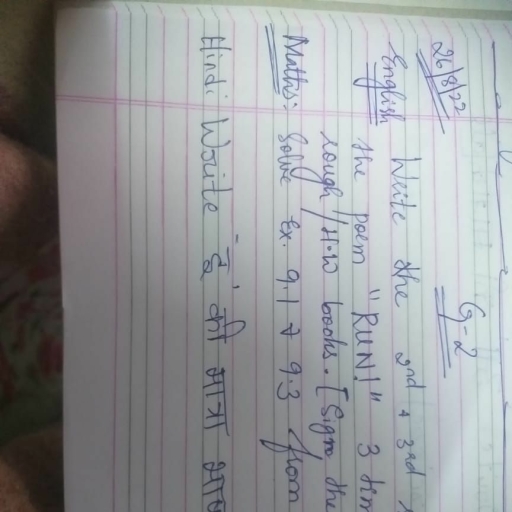 26/8/22
G-2
English Write the 2nd & 3rd
the poem "RUN!" 3 tim
rough/H.W books. [Sign the
Maths: Solve Ex. 9.1 & 9.3 from
Hindi Write की मात्रा